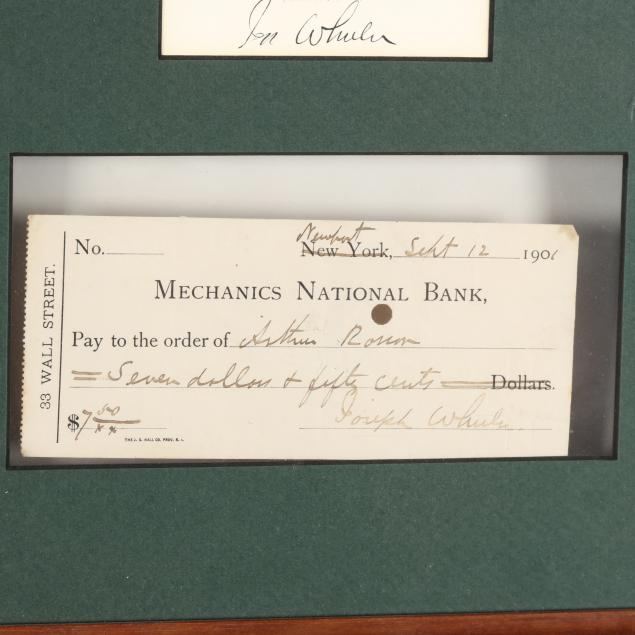 Jos Wheeler
33 WALL STREET.
No.
Newport
New York, Sept 12 1901
MECHANICS NATIONAL BANK,
Pay to the order of Arthur
= Seven dollars & fifty cents = Dollars.
$7 50/xx
Joseph Wheeler
THE J. C. HALL CO. PROV. R. I.